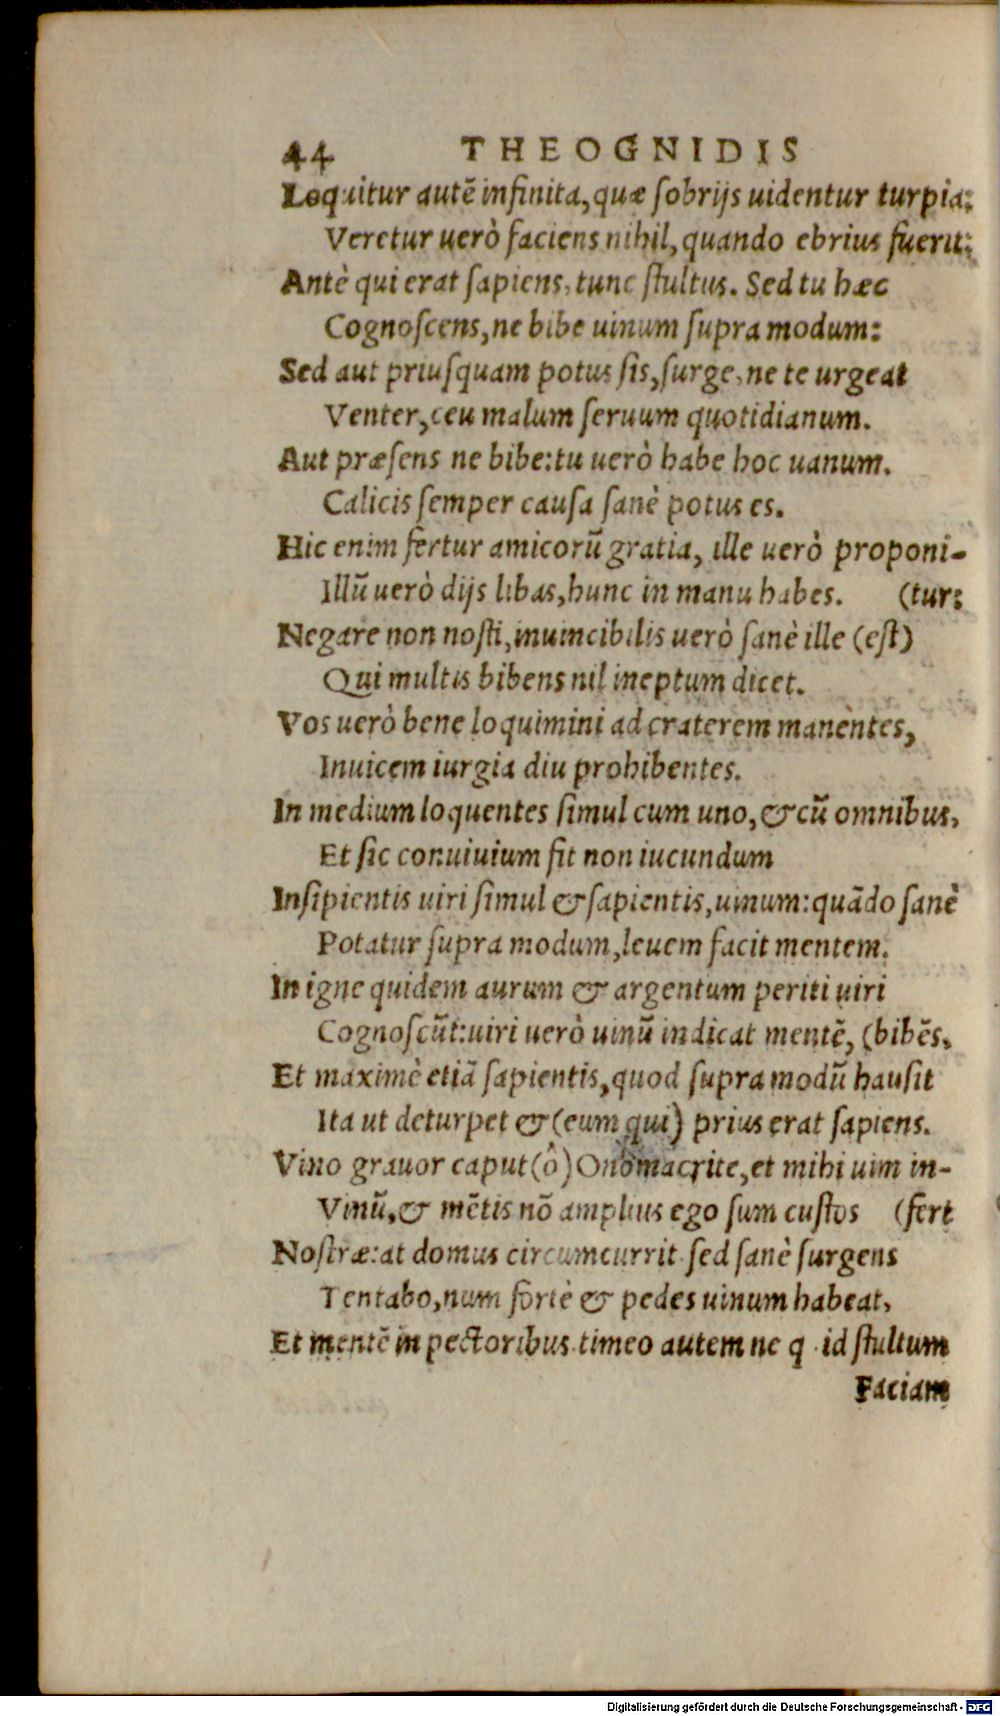 44 THEOGNIDIS
Loquitur autẽ infinita, quæ ſobrijs uidentur turpia:
Veretur uerò faciens nihil, quando ebrius fuerit:
Antè qui erat ſapiens, tunc ſtultus. Sed tu hæc
Cognoſcens, ne bibe uinum ſupra modum:
Sed aut priuſquam potus ſis, ſurge, ne te urgeat
Venter, ceu malum ſeruum quotidianum.
Aut præſens ne bibe: tu uerò habe hoc uanum.
Calicis ſemper cauſa ſanè potus es.
Hic enim fertur amicorũ gratia, ille uerò proponi-
Illũ uerò dijs libas, hunc in manu habes. (tur:
Negare non noſti, inuincibilis uerò ſanè ille (eſt)
Qui multis bibens nil ineptum dicet.
Vos uerò bene loquimini ad craterem manèntes,
Inuicem iurgia diu prohibentes.
In medium loquentes ſimul cum uno, & cũ omnibus,
Et ſic conuiuium fit non iucundum
Inſipientis uiri ſimul & ſapientis, uinum: quãdo ſanè
Potatur ſupra modum, leuem facit mentem.
In igne quidem aurum & argentum periti uiri
Cognoſcũt: uiri uerò uinũ indicat mentẽ, (bibẽs.
Et maximè etiã ſapientis, quod ſupra modũ hauſit
Ita ut deturpet & (eum qui) prius erat ſapiens.
Vino grauor caput (ô) Onomacrite, et mihi uim in-
Vinũ, & mẽtis nõ amplius ego ſum cuſtos (fert
Noſtræ: at domus circumcurrit. ſed ſanè ſurgens
Tentabo, num fortè & pedes uinum habeat,
Et mentẽ in pectoribus. timeo autem ne q id ſtultum
Faciam
Digitalisierung gefördert durch die Deutsche Forschungsgemeinschaft - DFG